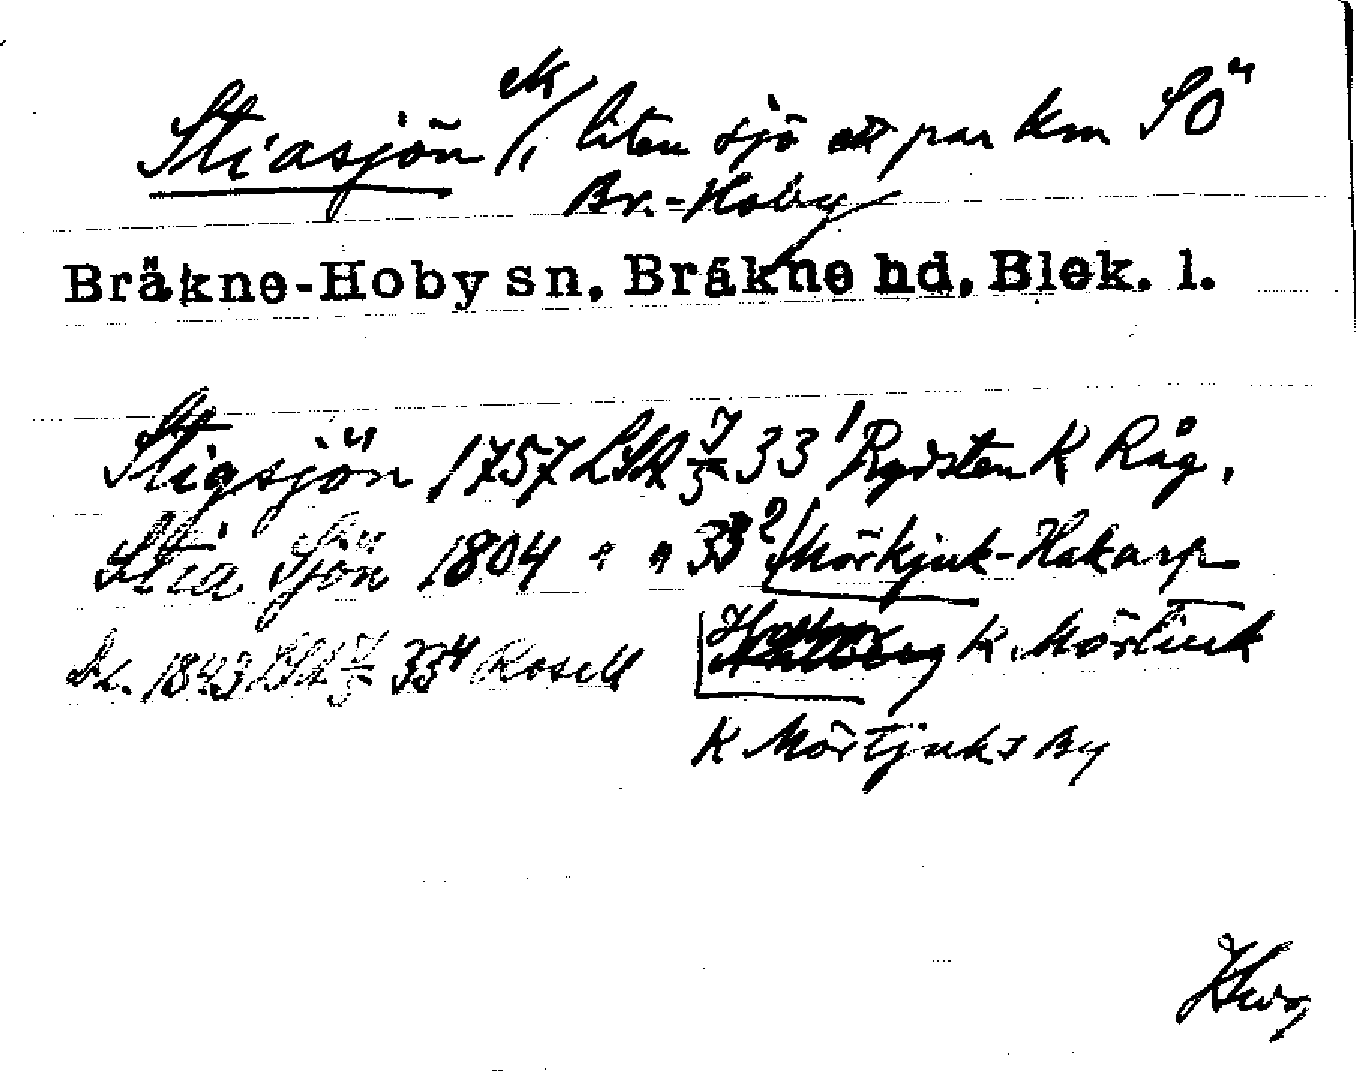 Stiasjön ek/, liten sjö ett par km SÖ
Br.-Hoby
Bräkne-Hoby sn, Bräkne hd, Blek. l.
Stigsjön 1757 LSA 7/5 33¹ Rydsten K Råg.
Stia Sjön 1804 " " 33² Mörkjuk-Hakarp
Dh. 1843 LSA 7/5 33⁴ Rosell K Mörtjuk
K Mörtjuks By